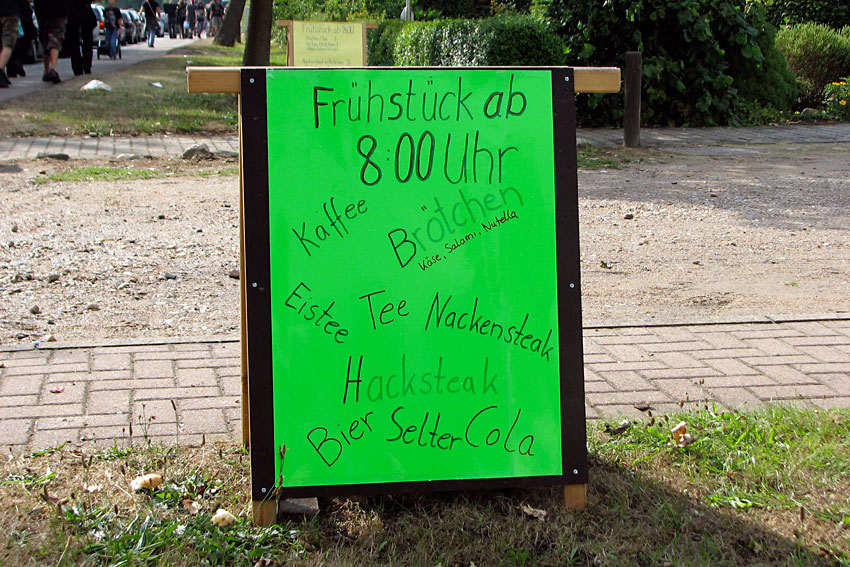 Frühstück ab
8:00 Uhr
Kaffee
Brötchen
Käse, Salami, Nutella
Eistee
Tee
Nackensteak
Hacksteak
Bier
Selter
Cola
Frühstück ab 8:00